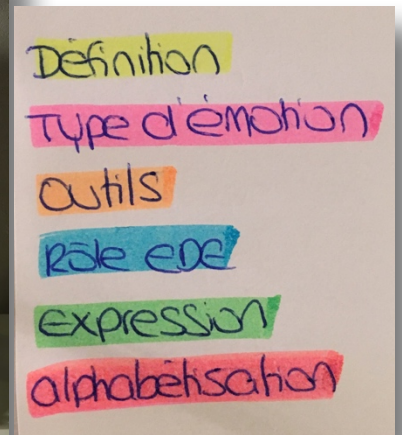 Définition
Type d'émotion
Outils
Rôle EDE
Expression
alphabétisation